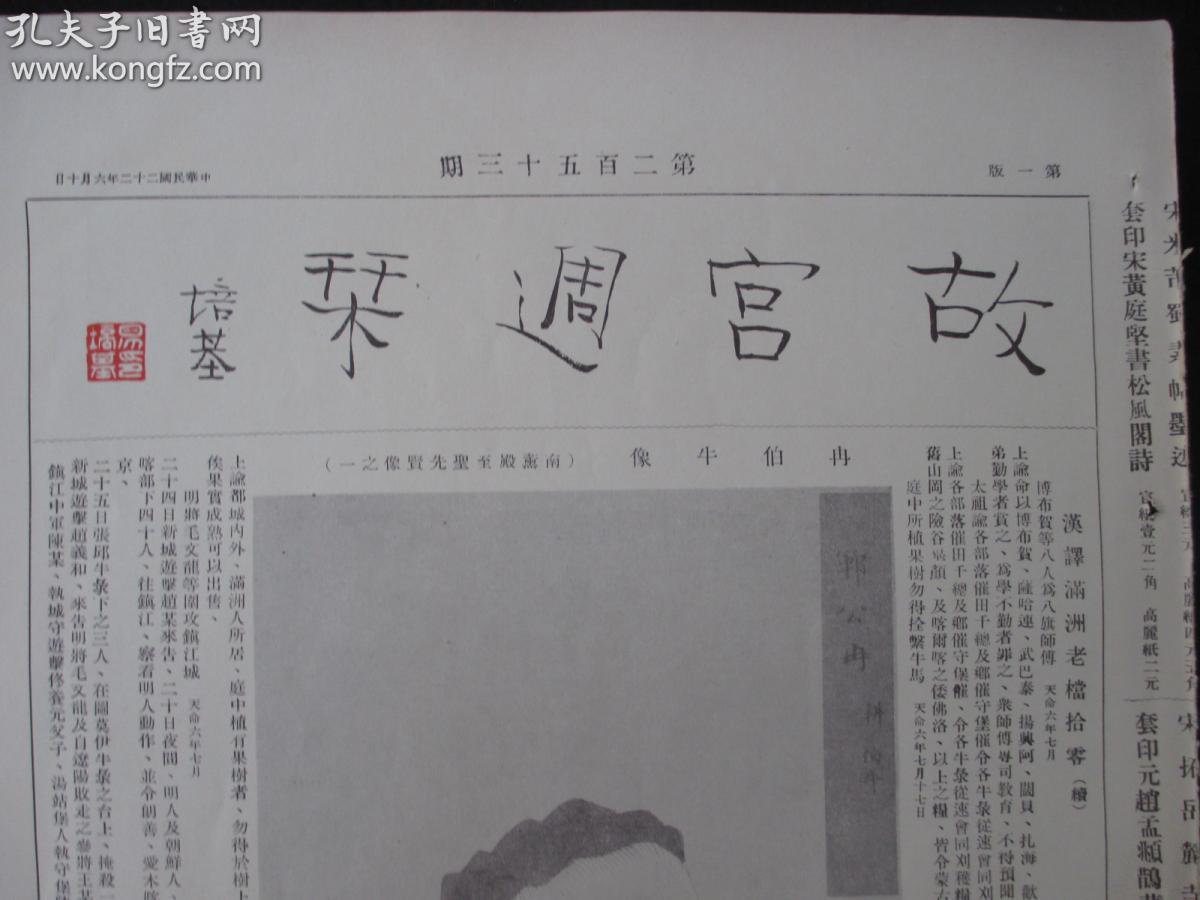 孔夫子旧书网
www.kongfz.com
第一版
第二百五十三期
中華民國二十二年六月十日
故宮週栞
培基
冉伯牛像
（南薰殿至聖先賢像之一）
漢譯滿洲老檔拾零（續）
博布賀等八人爲八旗師傅 天命六年七月
上諭命以博布賀、薩哈連、武巴泰、揚興阿、闊貝、扎海、
弟勤學者賞之、爲學不勤者罪之、衆師傅專司敎育、不得預聞
太祖諭各部落催田千總及鄉催守堡催令各牛彔從速會同刈
上諭各部落催田千總及鄉催守堡催、令各牛彔從速會同刈穫糧
舊山岡之險谷
及喀爾喀之倭佛洛、以上之糧、皆令蒙古
庭中所植果樹勿得拴繫牛馬 天命六年七月十七日
鄆公冉耕
上諭都城內外、滿洲人所居、庭中植有果樹者、勿得於樹上
俟果實成熟可以出售、
明將毛文龍等圍攻鎭江城 天命六年七月
二十四日新城遊擊趙某來告、二十日夜間、明人及朝鮮人、
喀部下四十人、往鎭江、察看明人動作、並令朗善、愛木喀
京、
二十五日張邱牛彔下之三人、在圖莫伊牛彔之台上、掩殺一
新城遊擊趙義和、來告明將毛文龍及自遼陽敗走之參將王某
鎭江中軍陳某、執城守遊擊佟養元父子、湯站堡人執守堡
套印宋黃庭堅書松風閣詩 宣紙壹元二角 高麗紙二元
套印元趙孟頫鵲華